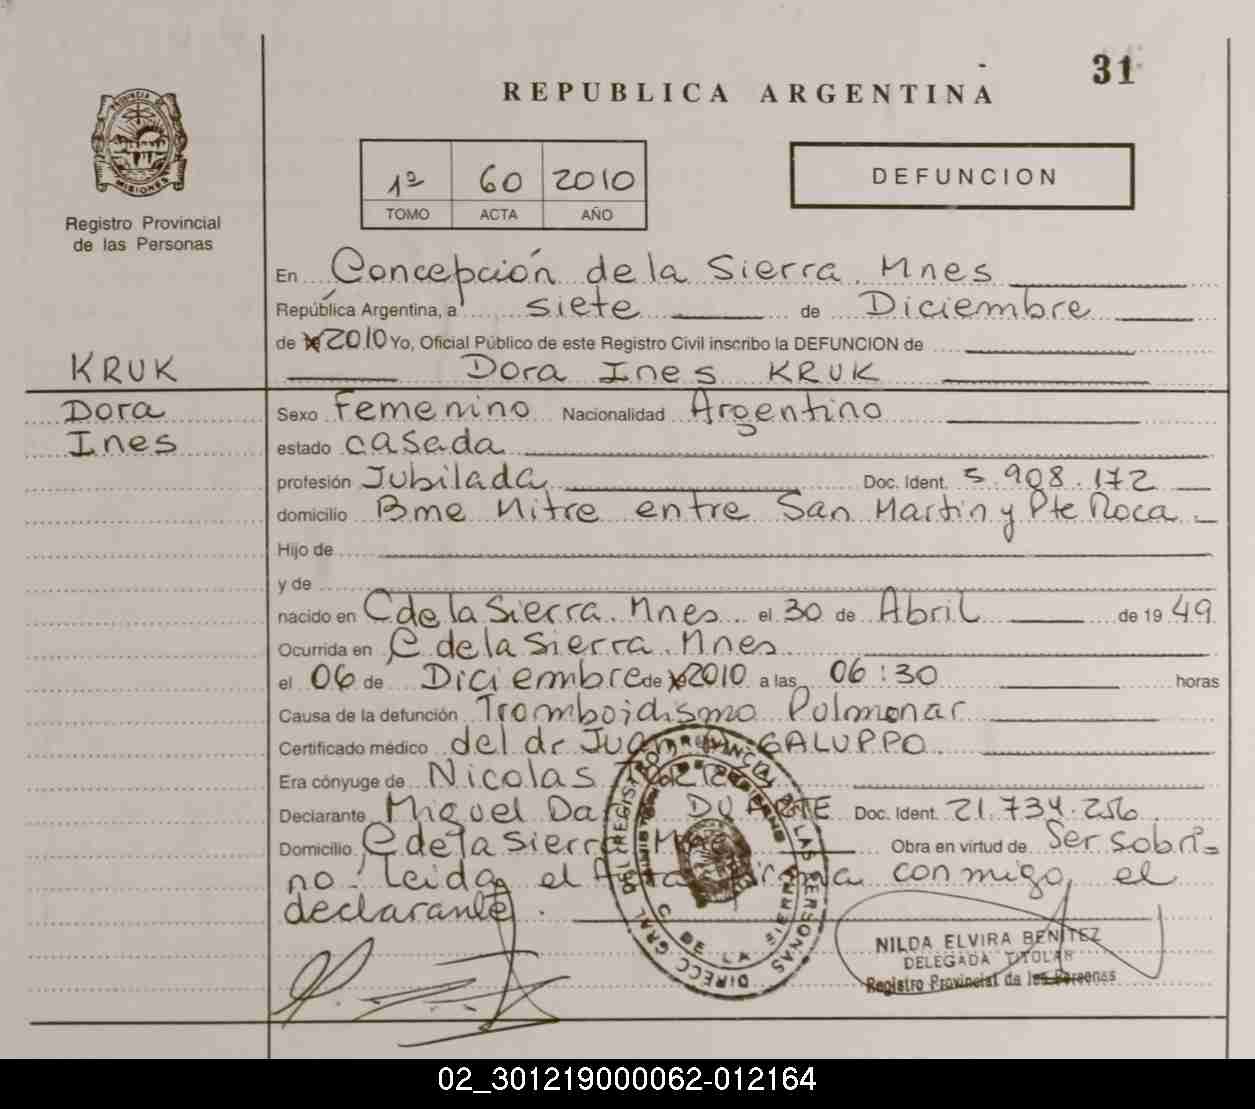 31
REPUBLICA ARGENTINA
PROVINCIA DE MISIONES
Registro Provincial
de las Personas
1º 60 2010
TOMO ACTA AÑO
DEFUNCION
En Concepción de la Sierra. Mnes
República Argentina, a siete de Diciembre
de 2010 Yo, Oficial Público de este Registro Civil inscribo la DEFUNCION de
KRUK
Dora Ines KRUK
Dora
Sexo Femenino Nacionalidad Argentino
Ines
estado casada
profesión Jubilada Doc. Ident. 5.908.172
domicilio Bme Mitre entre San Martin y Pte Roca
Hijo de
y de
nacido en C de la Sierra. Mnes el 30 de Abril de 1949
Ocurrida en C. de la Sierra. Mnes
el 06 de Diciembre de 2010 a las 06:30 horas
Causa de la defunción Tromboidismo Pulmonar
Certificado médico del dr Juan GALUPPO
Era cónyuge de Nicolas
Declarante Miguel DUARTE Doc. Ident. 21.734.256
Domicilio C de la Sierra Mnes Obra en virtud de Ser sobri=
no. Leida el Acta firma conmigo, el
declarante.
DIRECC GRAL DEL REGISTRO PROVINCIAL DE LAS PERSONAS
C. DE LA SIERRA
NILDA ELVIRA BENITEZ
DELEGADA TITULAR
Registro Provincial de las Personas
02_301219000062-012164